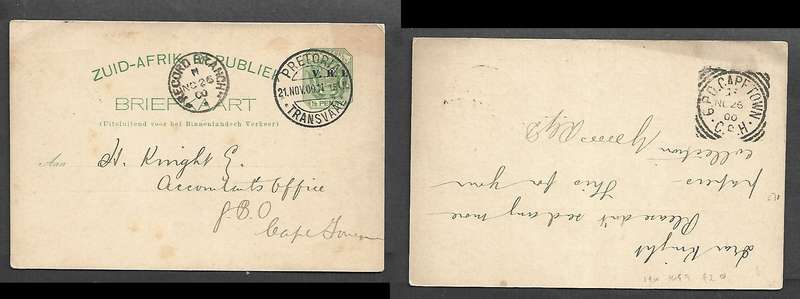 ZUID-AFRIK REPUBLIEK
BRIEFKAART
(Uitsluitend voor het Binnenlandsch Verkeer)
V. R. I.
PRETORIA
21.NOV.00
TRANSVAAL
RECORD BRANCH
NO 26
00
Aan H. Knight E.
Accountants Office
G.P.O
Cape Town
G.P.O. CAPETOWN
NO 26
00
C.G.H.
Dear Knight
Please don't send any more
papers - this for your
collection